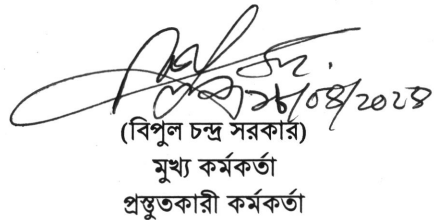 (বিপুল চন্দ্র সরকার)
মুখ্য কর্মকর্তা
প্রস্তুতকারী কর্মকর্তা